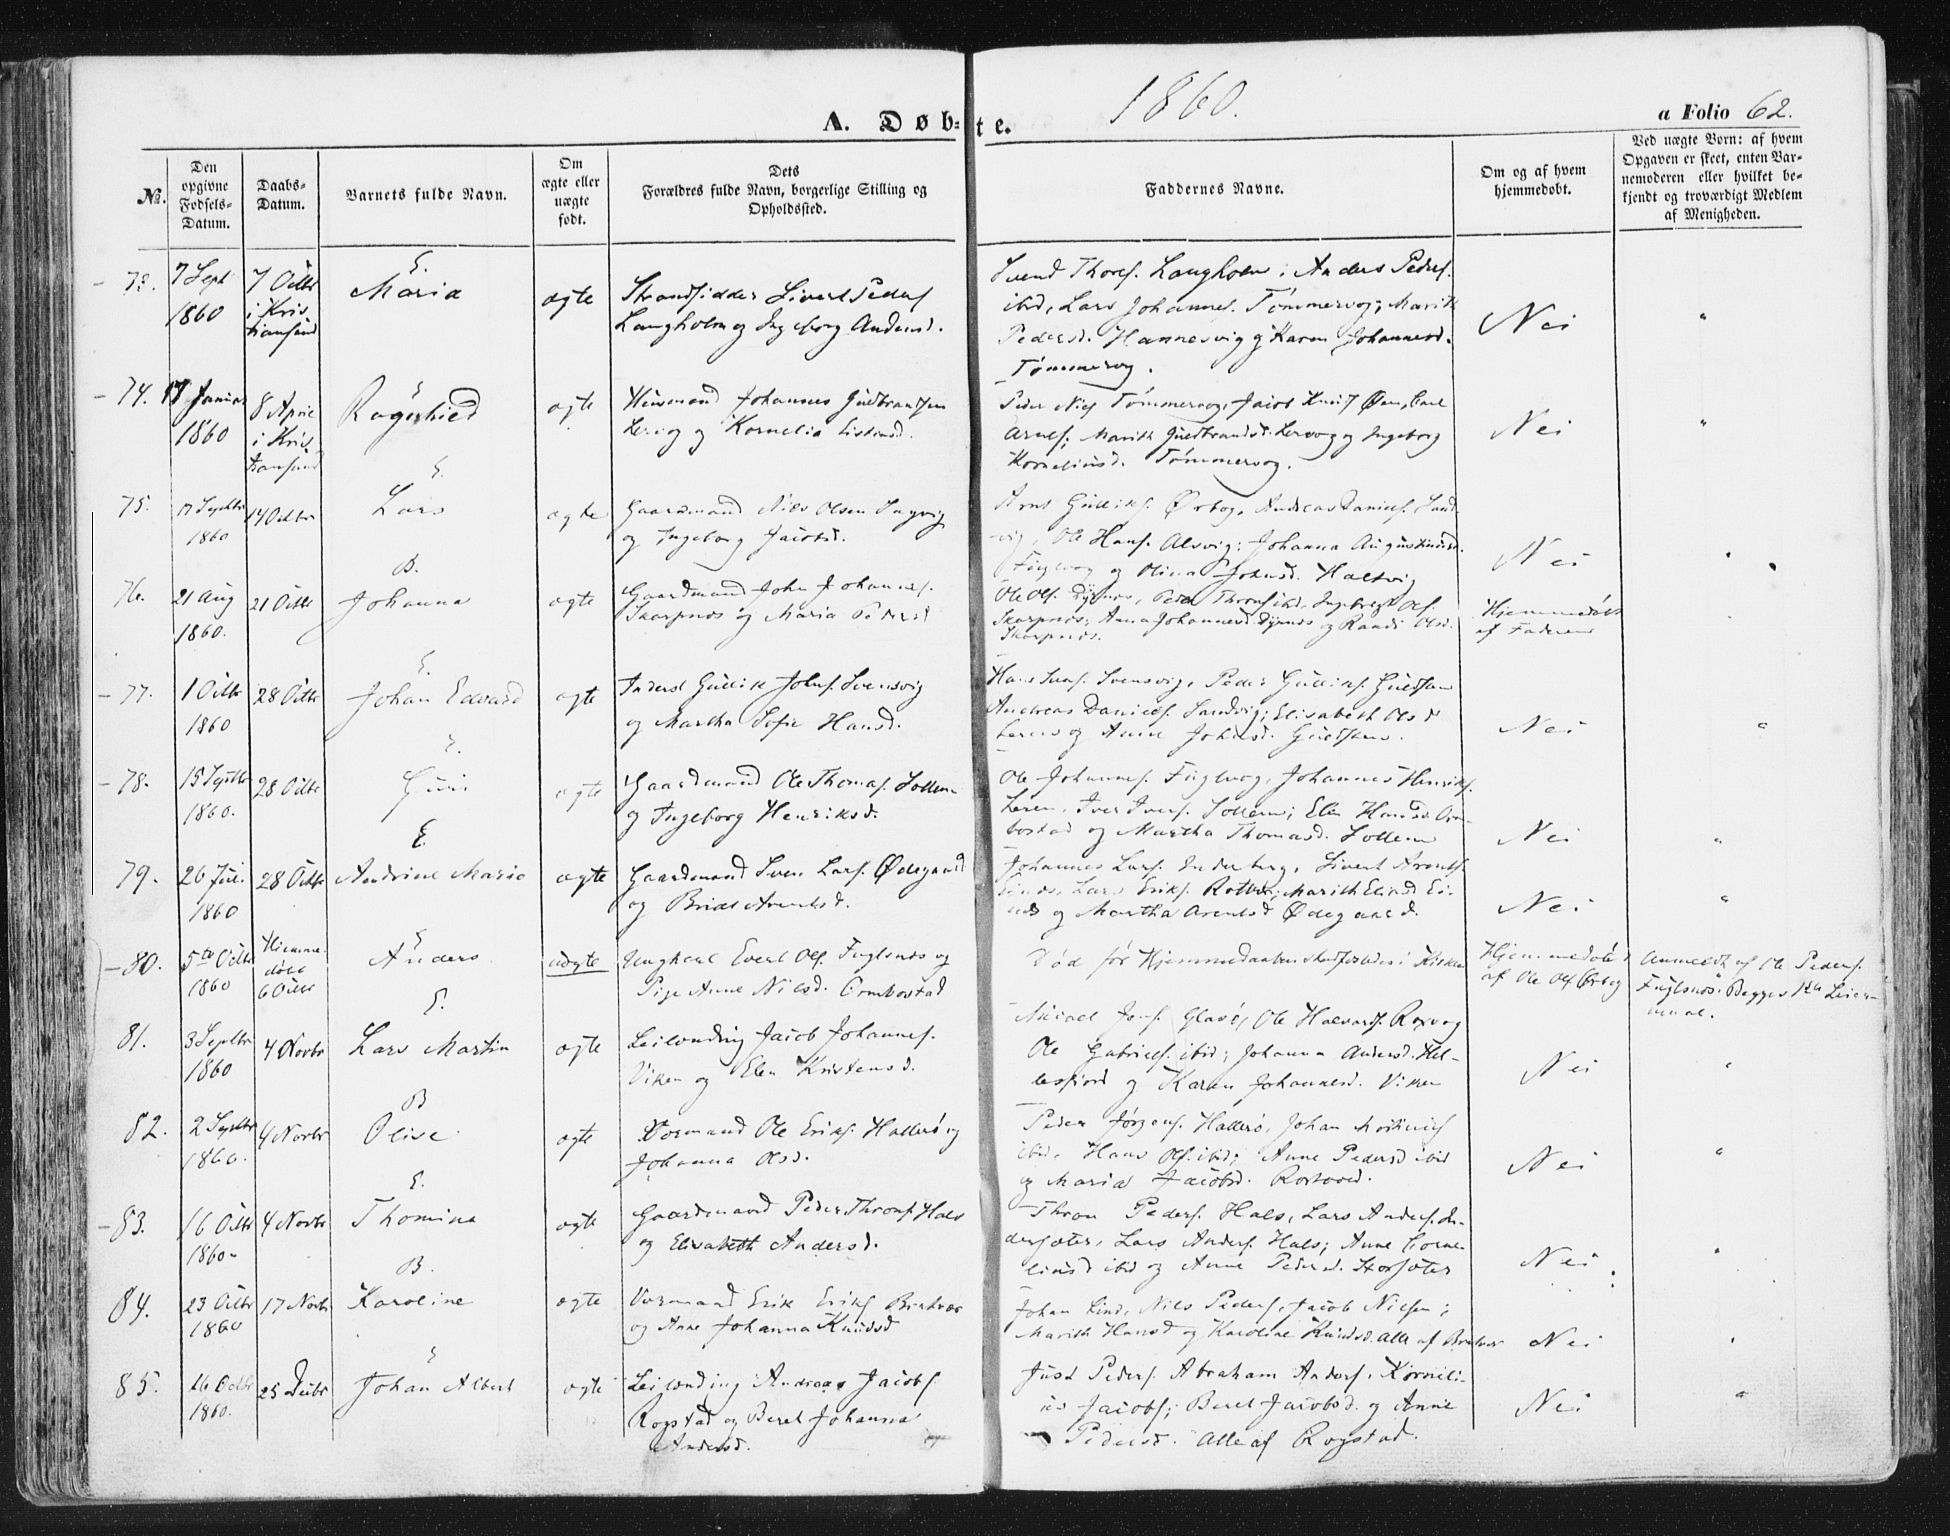 1860.
A. Døb-te.
a Folio 62.
No.
Den opgivne Fødsels-Datum.
Daabs-Datum.
Barnets fulde Navn.
Om ægte eller uægte født.
Dets Forældres fulde Navn, borgerlige Stilling og Opholdssted.
Faddernes Navne.
Om og af hvem hjemmedøbt.
Ved uægte Børn: af hvem Opgaven er skeet, enten Barnemoderen eller hvilket bekjendt og troværdigt Medlem af Menigheden.
73. 7 Sept 1860
7 Octbr i Kristiansund
E. Maria
ægte
Strandsidder Sivert Peders
Langholm og Ingeborg Andersd.
Svend Thores. Langholm; Anders Peders.
ibid, Lars Johannes. Tømmervog; Marith
Pedersd. Hannesvig og Karen Johannesd.
Tømmervog.
Nei
"
74. 17 Januar 1860
8 April i Kristiansund
E Ragnhild
ægte
Huusmand Johannes Gudbrandsen
og Kornelia
Peder Niels Tømmervog, Jacob
Arnes; Marith Gudbrandsd. Lervog og Ingeborg
Korneliusd. Tømmervog.
Nei
"
75. 17 Septbr 1860
14 Octbr
E. Lars
ægte
Gaardmand Nils Olsen
og Ingeborg Jacobsd.
Arnt Gulliks. Ørbog, Andreas Daniels. Sand-
vig, Ole Hans. Alsvig; Johanna Augustinusd.
Fuglvog og Olina Johnsd. Haltvig
Nei
"
76. 21 Aug 1860.
21 Octbr
B. Johanna
ægte
Gaardmand John Johannes.
Skarpnes og Maria Pedersd
Ole Ols. Dyrnes, Peder Throns ibid, Ingebrigt Ols.
Skarpnes; Anna Johannesd. Dyrnes og Randi Olsd.
Skarpnes.
Hjemmedøbt
af Faderen
77. 1 Octbr 1860
28 Octbr
E. Johan Edvard
ægte
Inderst Gullik Johns. Svensvig
og Martha Sofie Hansd.
Hans Svens. Svensvig, Peder Gulliks.
Andreas Daniels. Sandvig; Elisabeth Olsd
og Anne Johnsd.
Nei
"
78. 15 Septbr 1860.
28 Octbr
E. Guri
ægte
Gaardmand Ole Thomas. Sollem
og Ingeborg Henriksd.
Ole Johannes. Fuglevog, Johannes Henriks.
Leren, Iver Ivers. Sollem; Elen Hansd. Orn-
bostad og Martha Thomasd. Sollem
Nei
"
79. 26 Juli 1860
28 Octbr
E. Andrine Marie
ægte
Gaardmand Sven Lars. Ødegaard
og Brit Arentsd.
Johannes Lars. Inderberg, Sivert Arents.
Einds, Lars Eriks. Marith
og Martha Arentsd Ødegaard.
Nei
"
80. 5te Octbr 1860
Hjemme-
døbt
6 Octbr
E Anders
uægte
Ungkarl Evert Ols. Fuglsnes og
Pige Anne Nilsd. Ornbostad
Død før Hjemmedaaben stadfæstedes i Kirken
Hjemmedøbt
af Ole Ols Ørbog
Anmeldt af Ole Peders.
Fuglsnes. Begges 1ste Leier-
maal.
81. 3 Septbr 1860
4 Novbr
E. Lars Martin
ægte
Leilending Jacob Johannes.
Viken og Elen Kristensd.
Michael Jons. Glasø, Ole Halvards. Roxvog
Ole Gabriels. ibid; Johanna Andersd. Hel-
lesfjord og Karen Johannesd. Viken
Nei
"
82. 2 Septbr 1860.
4 Novbr
B Olive
ægte
Vormand Ole Eriks. Hallerø og
Johanna Olsd.
Peder Jørgens. Hallerø, Johan
ibid, Hans Ols. ibid; Anne Pedersd ibid
og Maria Jacobsd.
Nei
"
83. 16 Octbr 1860.
4 Novbr
E. Thomine
ægte
Gaardmand Peder Throns. Hals
og Elisabeth Andersd.
Thron Peders. Hals, Lars Anders. In-
dersæter, Lars Anders. Hals; Anne Corne-
liusd ibid og Anne Pedersd. Storsæter
Nei
"
84. 23 Octbr 1860
17 Novbr
B. Karoline
ægte
Vormand Erik Eriks Bratvær
og Anne Johanna Knudsd
Johan Lind, Nils Peders, Jacob Nielsen;
Marith Hansd og Karoline Knudsd. alle af Bratvær
Nei
"
85. 26 Octbr 1860.
25 Decbr
E Johan Albert
ægte
Leilending Andreas Jacobs
Rogstad og Beret Johanna
Andersd.
Just Peders. Abraham Anders. Korneli-
us Jacobs; Beret Jacobsd. og Anne
Pedersd. Alle af Rogstad.
Nei
"